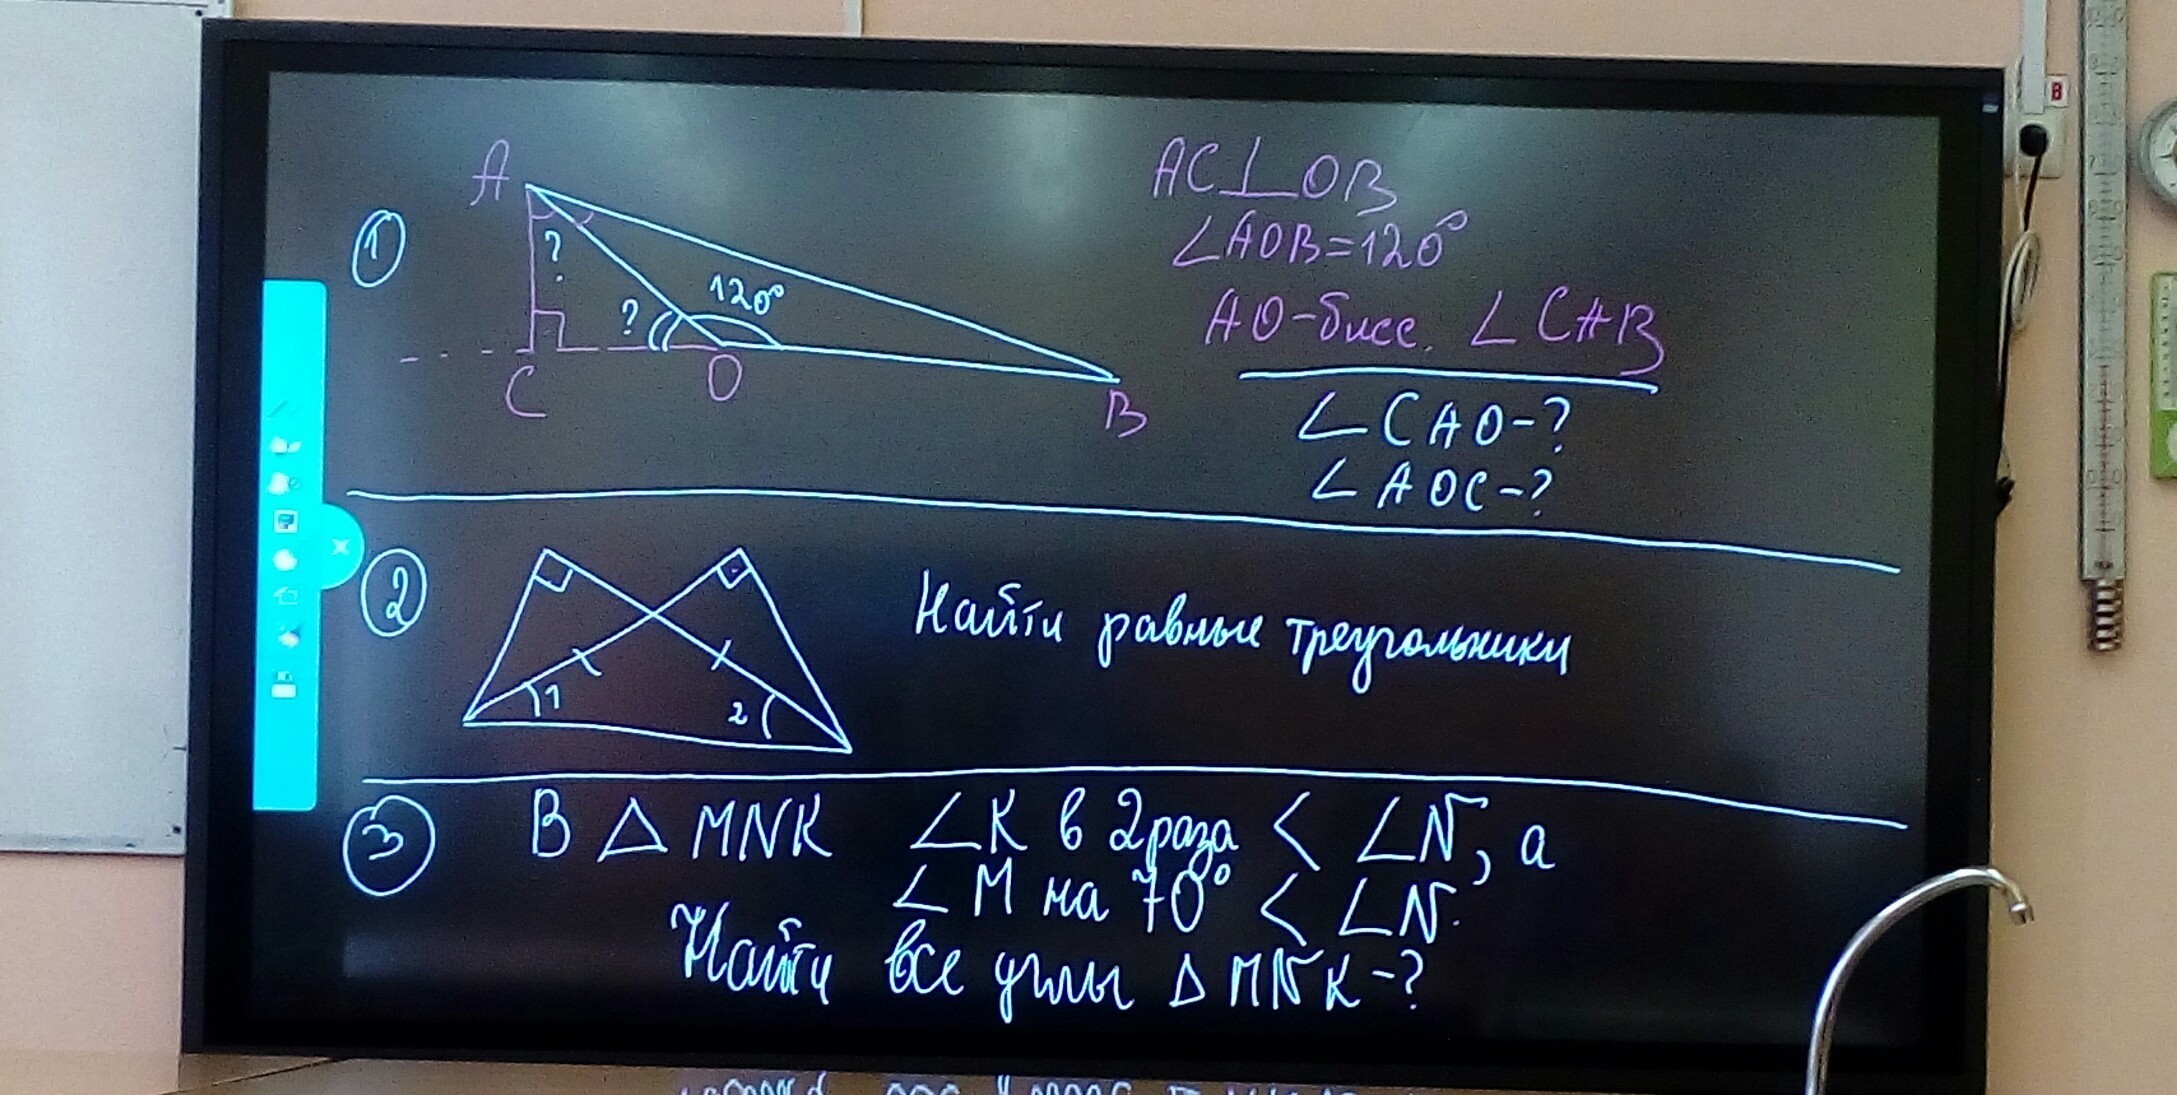 1
A
?
?
120°
C
O
B
AC⊥OB
∠AOB=120°
AO-бисс. ∠CAB
∠CAO-?
∠AOC-?
2
1
2
Найти равные треугольники
3
В △ MNK ∠K в 2 раза < ∠N, а
∠M на 70° < ∠N.
Найти все углы △ MNK-?